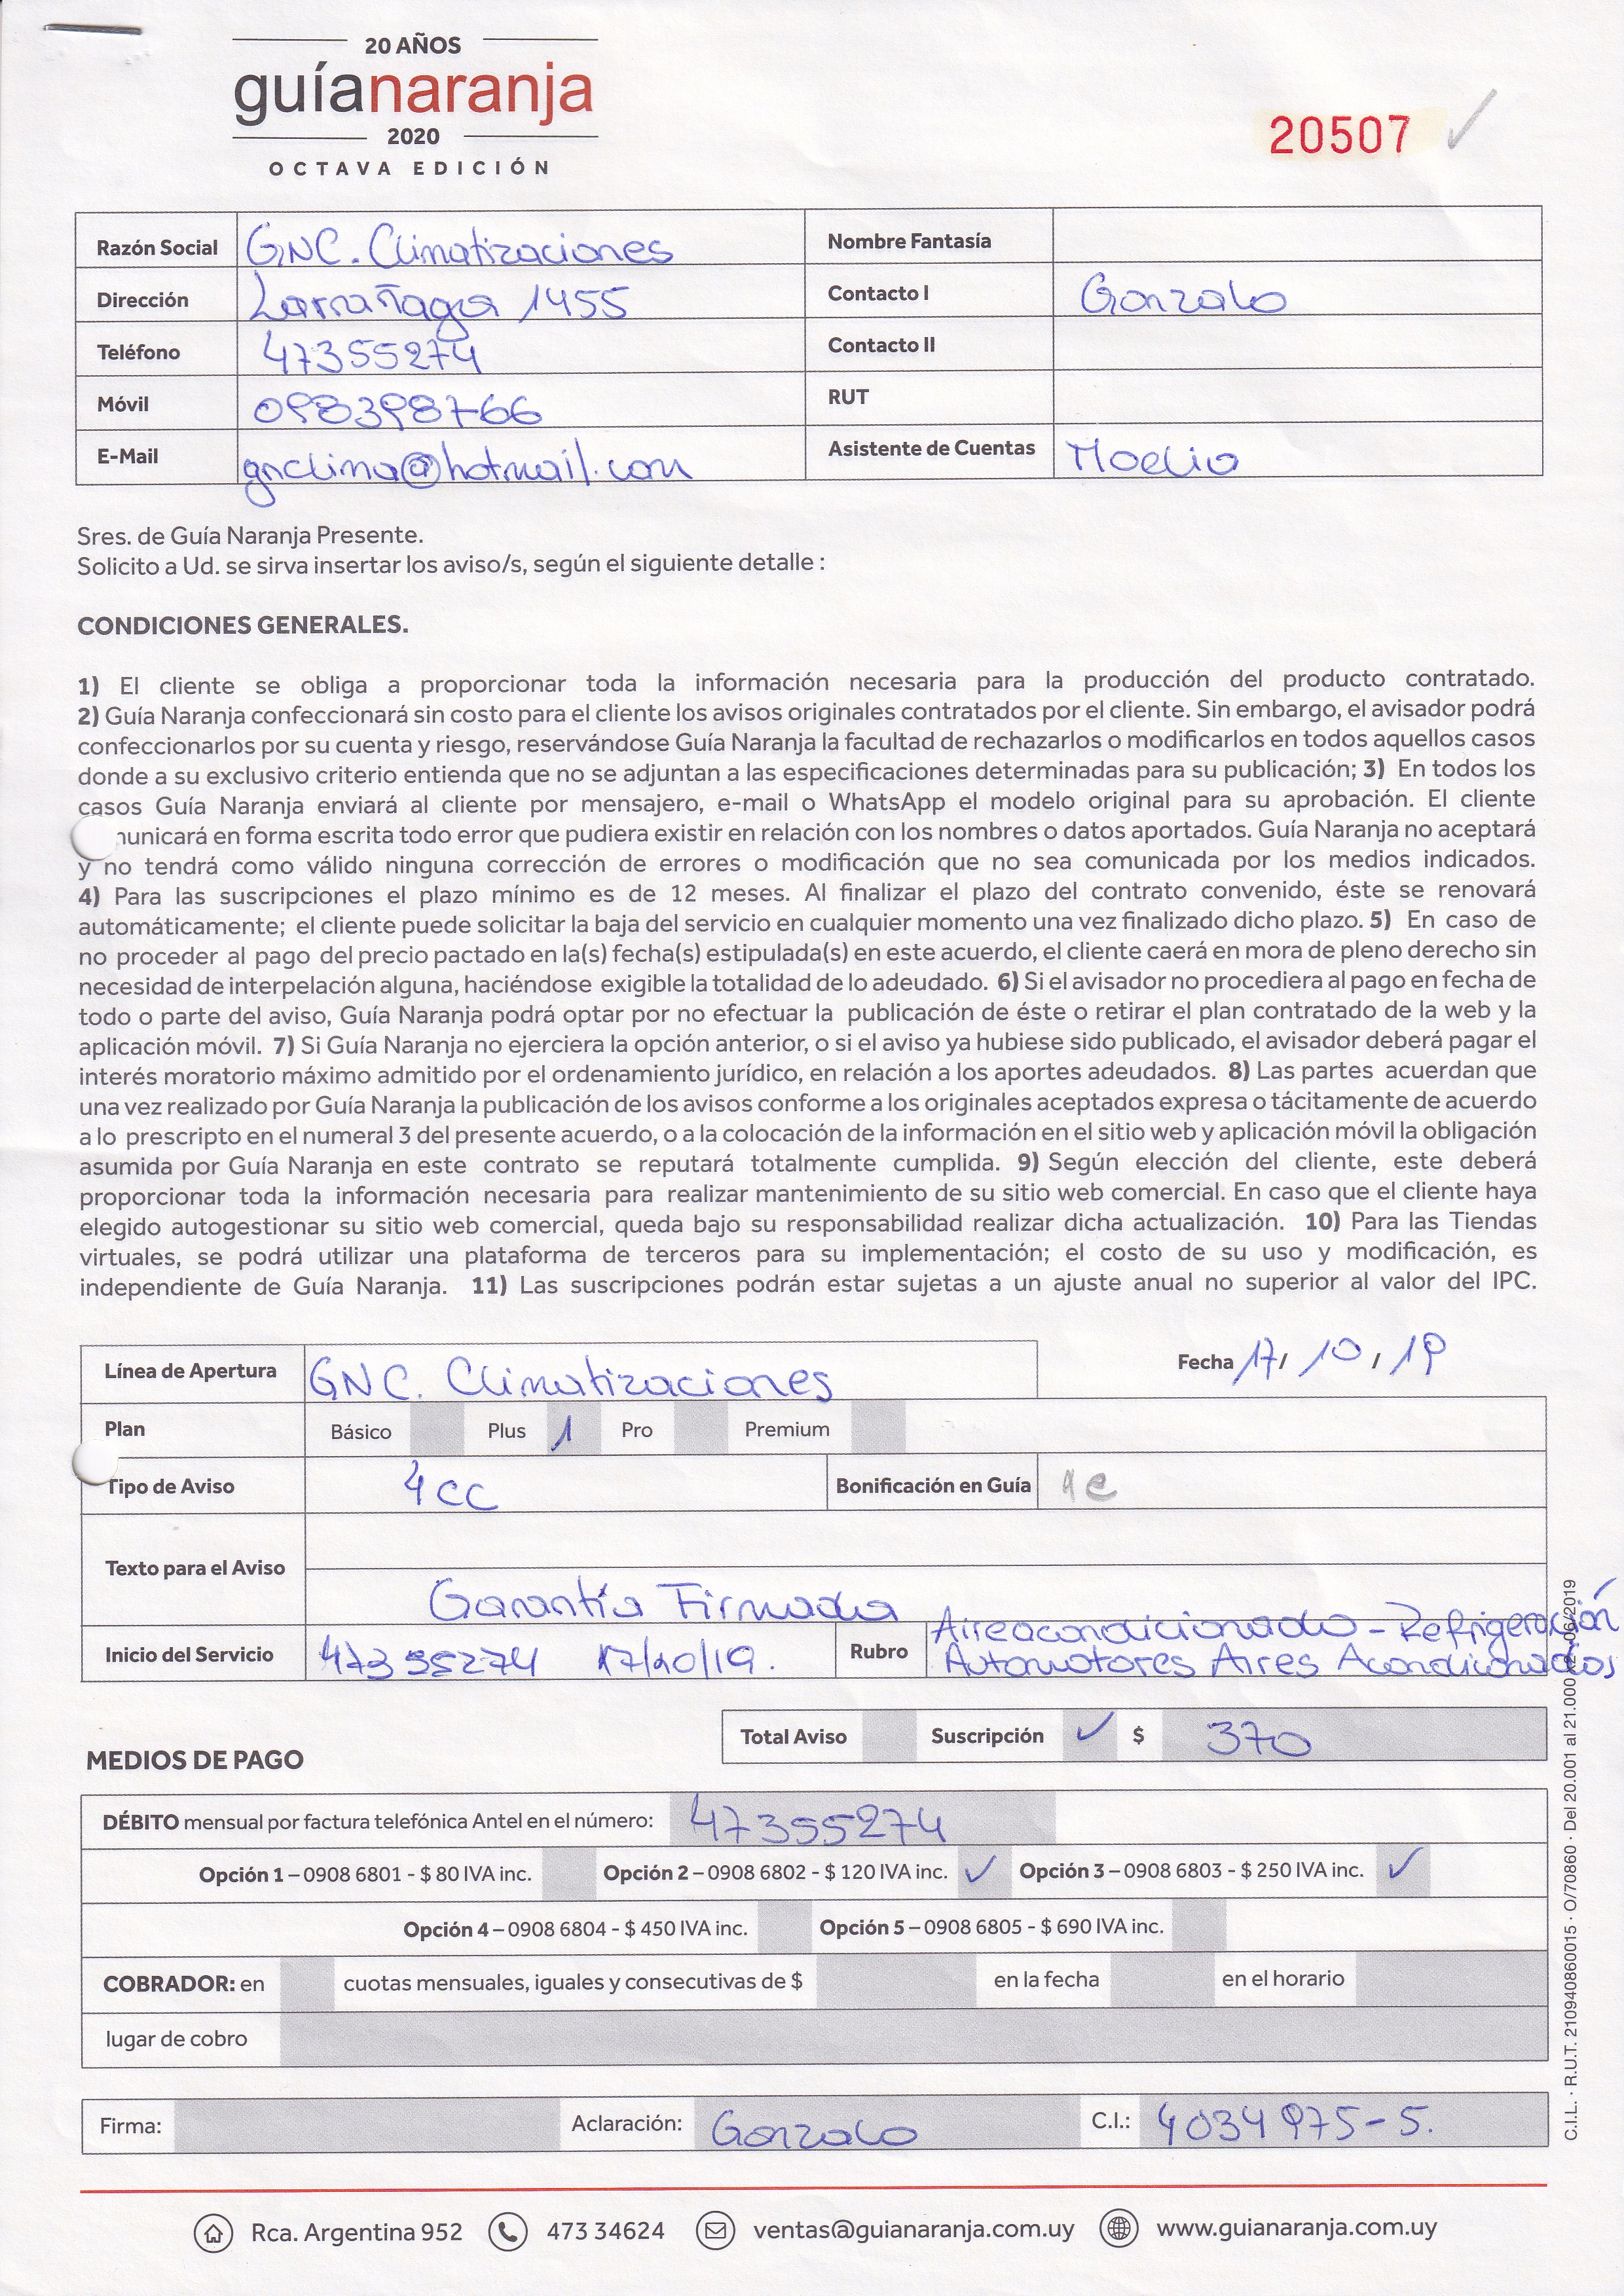 20 AÑOS
guíanaranja
2020
OCTAVA EDICIÓN
20507
Razón Social GNC. Climatizaciones Nombre Fantasía
Dirección Larrañaga 1455 Contacto I Gonzalo
Teléfono 47355274 Contacto II
Móvil 098398766 RUT
E-Mail gnclima@hotmail.com Asistente de Cuentas
Sres. de Guía Naranja Presente.
Solicito a Ud. se sirva insertar los aviso/s, según el siguiente detalle :
CONDICIONES GENERALES.
1) El cliente se obliga a proporcionar toda la información necesaria para la producción del producto contratado.
2) Guía Naranja confeccionará sin costo para el cliente los avisos originales contratados por el cliente. Sin embargo, el avisador podrá
confeccionarlos por su cuenta y riesgo, reservándose Guía Naranja la facultad de rechazarlos o modificarlos en todos aquellos casos
donde a su exclusivo criterio entienda que no se adjuntan a las especificaciones determinadas para su publicación; 3) En todos los
casos Guía Naranja enviará al cliente por mensajero, e-mail o WhatsApp el modelo original para su aprobación. El cliente
municará en forma escrita todo error que pudiera existir en relación con los nombres o datos aportados. Guía Naranja no aceptará
y no tendrá como válido ninguna corrección de errores o modificación que no sea comunicada por los medios indicados.
4) Para las suscripciones el plazo mínimo es de 12 meses. Al finalizar el plazo del contrato convenido, éste se renovará
automáticamente; el cliente puede solicitar la baja del servicio en cualquier momento una vez finalizado dicho plazo. 5) En caso de
no proceder al pago del precio pactado en la(s) fecha(s) estipulada(s) en este acuerdo, el cliente caerá en mora de pleno derecho sin
necesidad de interpelación alguna, haciéndose exigible la totalidad de lo adeudado. 6) Si el avisador no procediera al pago en fecha de
todo o parte del aviso, Guía Naranja podrá optar por no efectuar la publicación de éste o retirar el plan contratado de la web y la
aplicación móvil. 7) Si Guía Naranja no ejerciera la opción anterior, o si el aviso ya hubiese sido publicado, el avisador deberá pagar el
interés moratorio máximo admitido por el ordenamiento jurídico, en relación a los aportes adeudados. 8) Las partes acuerdan que
una vez realizado por Guía Naranja la publicación de los avisos conforme a los originales aceptados expresa o tácitamente de acuerdo
a lo prescripto en el numeral 3 del presente acuerdo, o a la colocación de la información en el sitio web y aplicación móvil la obligación
asumida por Guía Naranja en este contrato se reputará totalmente cumplida. 9) Según elección del cliente, este deberá
proporcionar toda la información necesaria para realizar mantenimiento de su sitio web comercial. En caso que el cliente haya
elegido autogestionar su sitio web comercial, queda bajo su responsabilidad realizar dicha actualización. 10) Para las Tiendas
virtuales, se podrá utilizar una plataforma de terceros para su implementación; el costo de su uso y modificación, es
independiente de Guía Naranja. 11) Las suscripciones podrán estar sujetas a un ajuste anual no superior al valor del IPC.
Línea de Apertura GNC. Climatizaciones Fecha 17/ 10 / 19
Plan Básico Plus 1 Pro Premium
Tipo de Aviso 4 CC Bonificación en Guía 1c
Texto para el Aviso
Garantía Firmada
Inicio del Servicio 47355274 17/10/19. Rubro Aireacondicionado - Refrigeración
Automotores Aires Acondicionados
Total Aviso Suscripción ✓ $ 370
MEDIOS DE PAGO
DÉBITO mensual por factura telefónica Antel en el número: 47355274
Opción 1 – 0908 6801 - $ 80 IVA inc. Opción 2 – 0908 6802 - $ 120 IVA inc. ✓ Opción 3 – 0908 6803 - $ 250 IVA inc. ✓
Opción 4 – 0908 6804 - $ 450 IVA inc. Opción 5 – 0908 6805 - $ 690 IVA inc.
COBRADOR: en cuotas mensuales, iguales y consecutivas de $ en la fecha en el horario
lugar de cobro
Firma: Aclaración: Gonzalo C.I.: 4034975-5.
Rca. Argentina 952 473 34624 ventas@guianaranja.com.uy www.guianaranja.com.uy
C.I.L. · R.U.T. 210940860015 · O/70860 · Del 20.001 al 21.000 06/2019